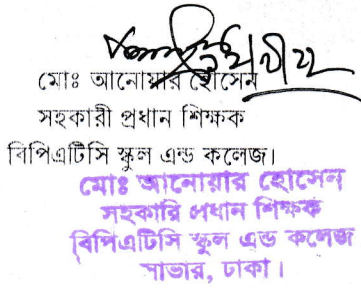 মোঃ আনোয়ার হোসেন
সহকারী প্রধান শিক্ষক
বিপিএটিসি স্কুল এন্ড কলেজ।
মোঃ আনোয়ার হোসেন
সহকারি প্রধান শিক্ষক
বিপিএটিসি স্কুল এন্ড কলেজ
সাভার, ঢাকা।